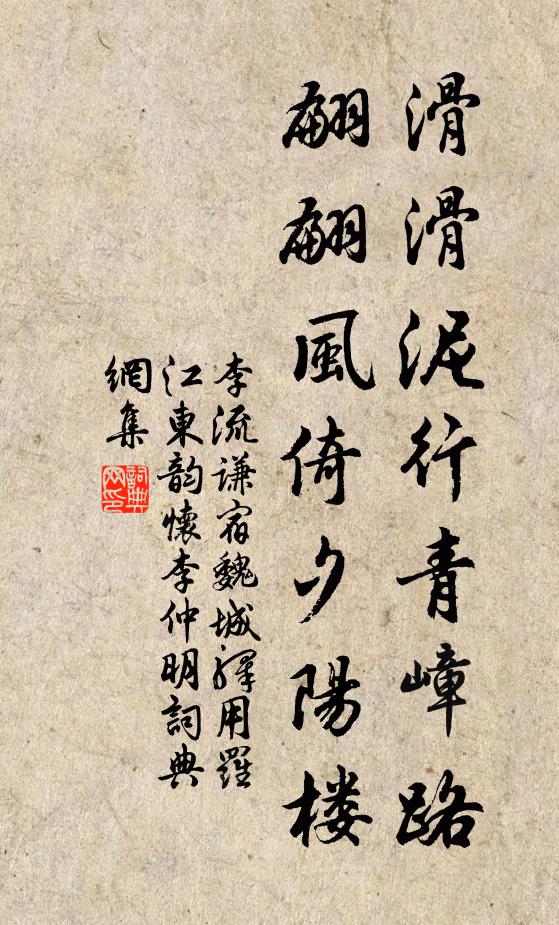 滑滑泥行青嶂路
翩翩風倚夕陽楼
李流謙宿魏城驛用羅
江東韵懷李仲明詞典
網集
詞典網印